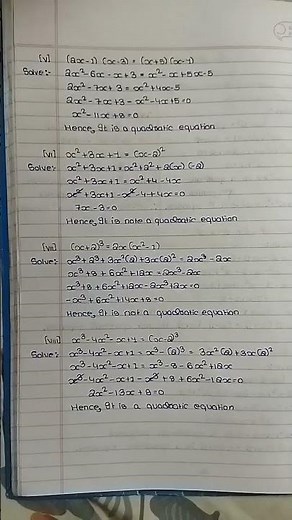 [v] (2x-1) (x-3) = (x+5) (x-1)
Solve:- 2x²-6x-x+3 = x²-x+5x-5
2x²-7x+3 = x²+4x-5
2x²-7x+3-x²-4x+5=0
x²-11x+8=0
Hence, It is a quadratic equation
[vi] x²+3x+1 = (x-2)²
Solve:- x²+3x+1 = x²+2²+2(x)(-2)
x²+3x+1 = x²+4-4x
x²+3x+1-x²-4+4x=0
7x-3=0
Hence, It is note a quadratic equation
[vii] (x+2)³ = 2x(x²-1)
Solve:- x³+2³+3x²(2)+3x(2)² = 2x³-2x
x³+8+6x²+12x = 2x³-2x
x³+8+6x²+12x-2x³+2x=0
-x³+6x²+14x+8=0
Hence, It is not a quadratic equation
[viii] x³-4x²-x+1 = (x-2)³
Solve:- x³-4x²-x+1 = x³-(2)³ = 3x²(2)+3x(2)²
x³-4x²-x+1 = x³-8-6x²+12x
x³-4x²-x+1-x³+8+6x²-12x=0
2x²-13x+8=0
Hence, It is a quadratic equation